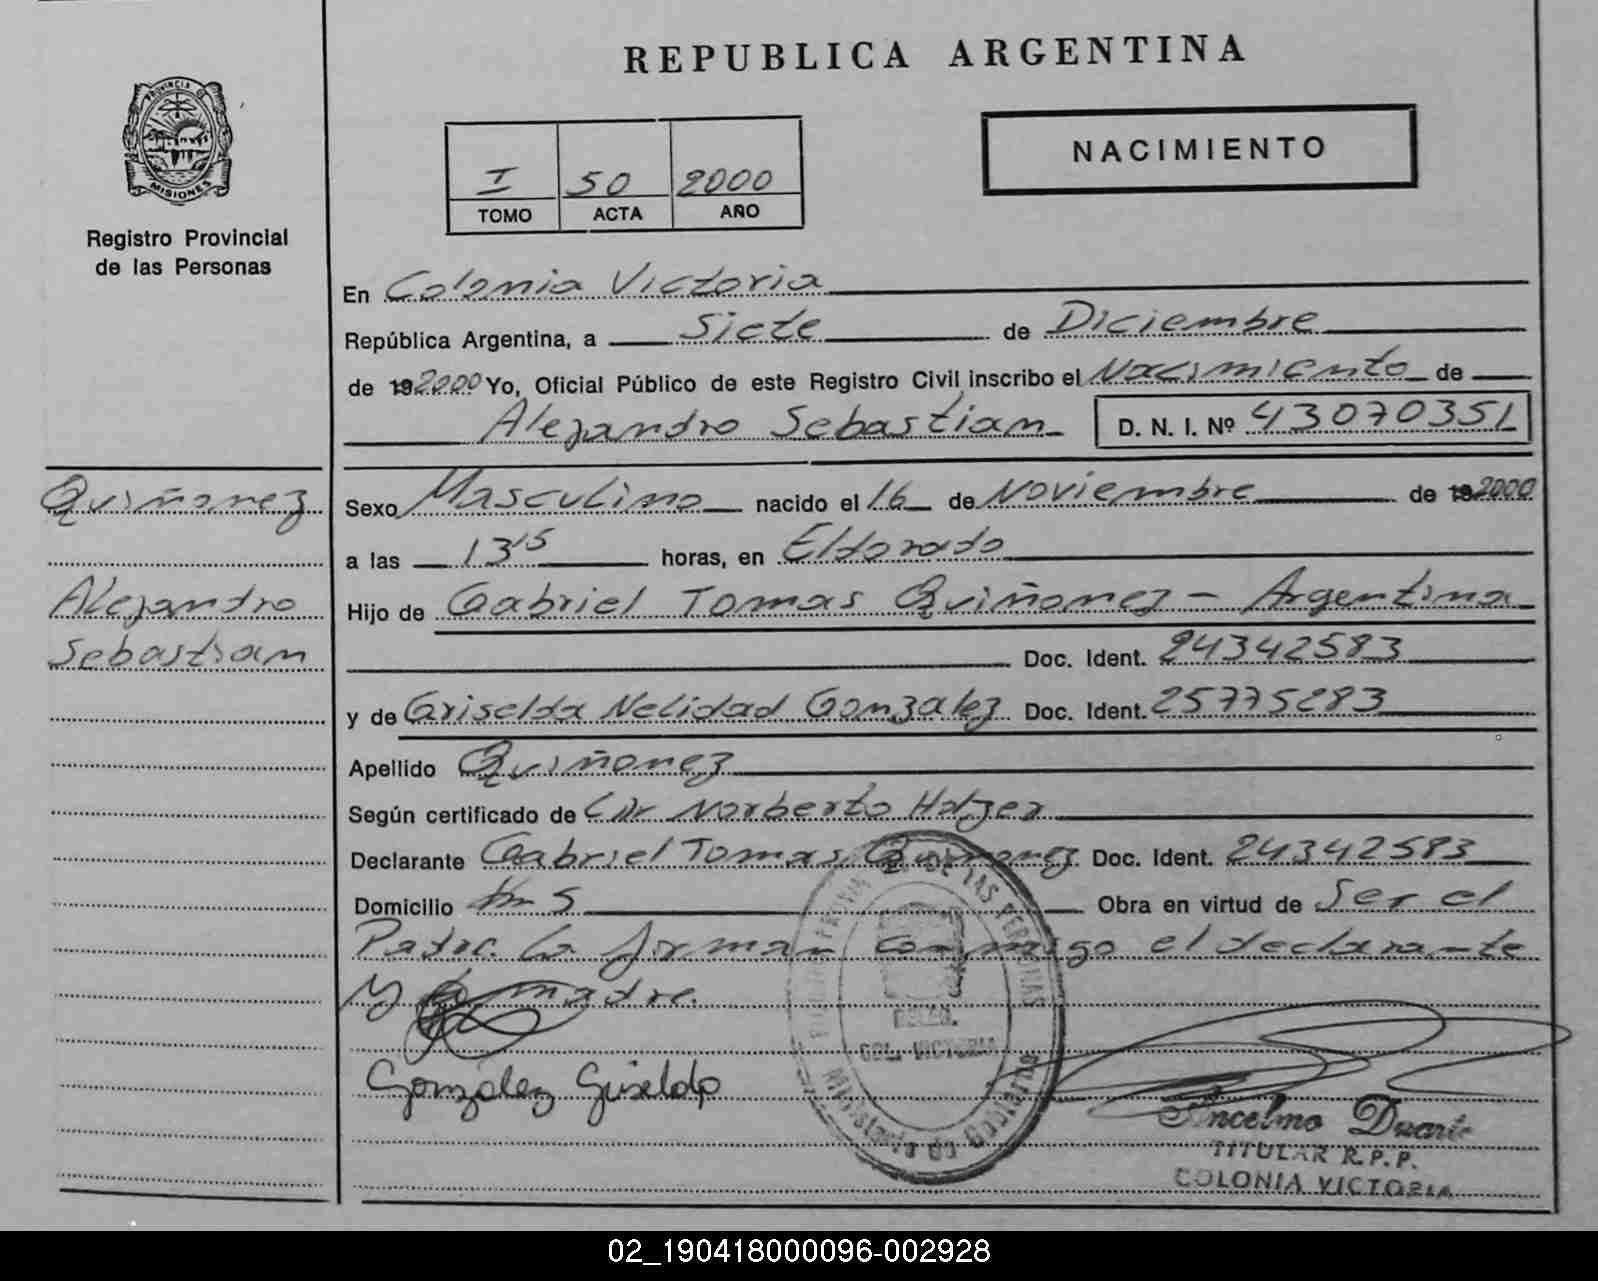 REPUBLICA ARGENTINA
PROVINCIA D
MISIONES
Registro Provincial
de las Personas
I 50 2000
TOMO ACTA AÑO
NACIMIENTO
En Colonia Victoria
República Argentina, a Siete de Diciembre
de 192000 Yo, Oficial Público de este Registro Civil inscribo el Nacimiento de
Alejandro Sebastian D. N. I. Nº 43070351
Quiñonez
Alejandro
Sebastian
Sexo Masculino nacido el 16 de Noviembre de 192000
a las 13 15 horas, en Eldorado
Hijo de Gabriel Tomas Quiñonez - Argentina
Doc. Ident. 24342583
y de Griselda Nelidad Gonzalez Doc. Ident. 25775283
Apellido Quiñonez
Según certificado de Norberto Holzer
Declarante Gabriel Tomas Quiñonez Doc. Ident. 24342583
Domicilio Km 5 Obra en virtud de Ser el
Padre. La firman conmigo el declarante
y la madre.
DE LAS PERSONAS
COL. VICTORIA
Ministerio de Gobierno
González Griselda
Ancelmo Duarte
TITULAR R.P.P.
COLONIA VICTORIA
02_190418000096-002928